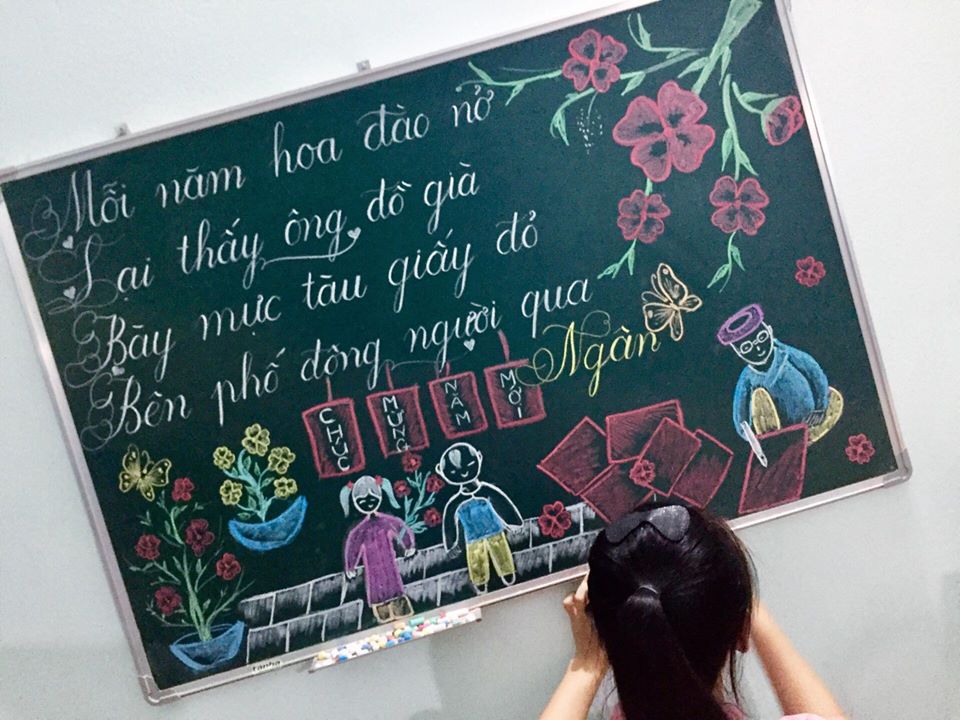 Mỗi năm hoa đào nở
Lại thấy ông đồ già
Bày mực tàu giấy đỏ
Bên phố đông người qua
Ngàn
CHÚC
MỪNG
NĂM
MỚI